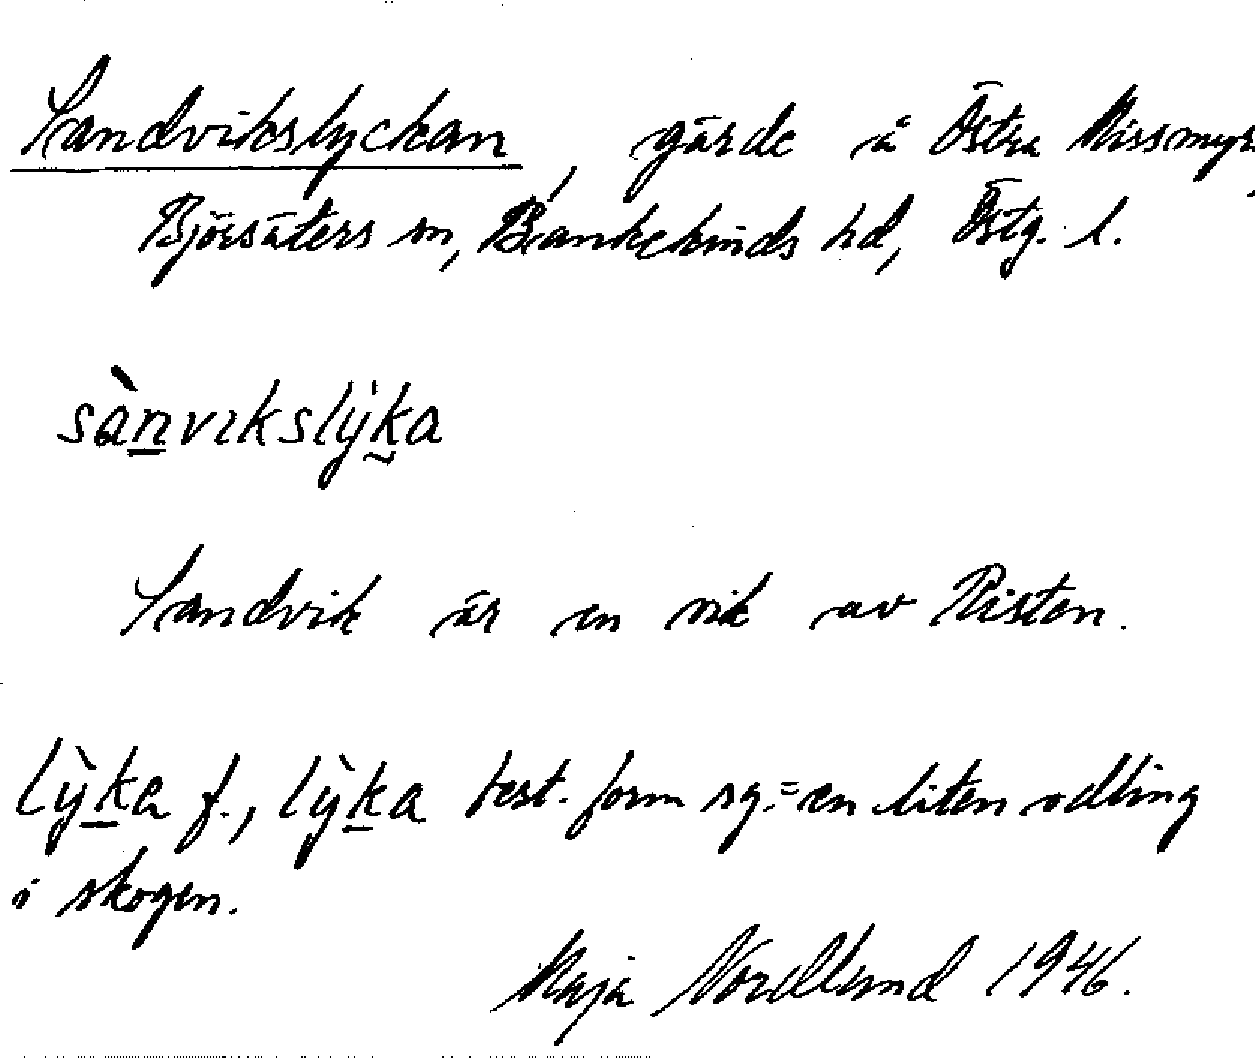 Sandvikslyckan, gärde å Östra Missmyr,
Björsäters sn, Bankekinds hd, Östg. l.
sànvɪkslỳka
Sandvik är en vik av Risten.
lỳka f., lỳka best. form sg. = en liten odling
i skogen.
Maja Nordlund 1946.